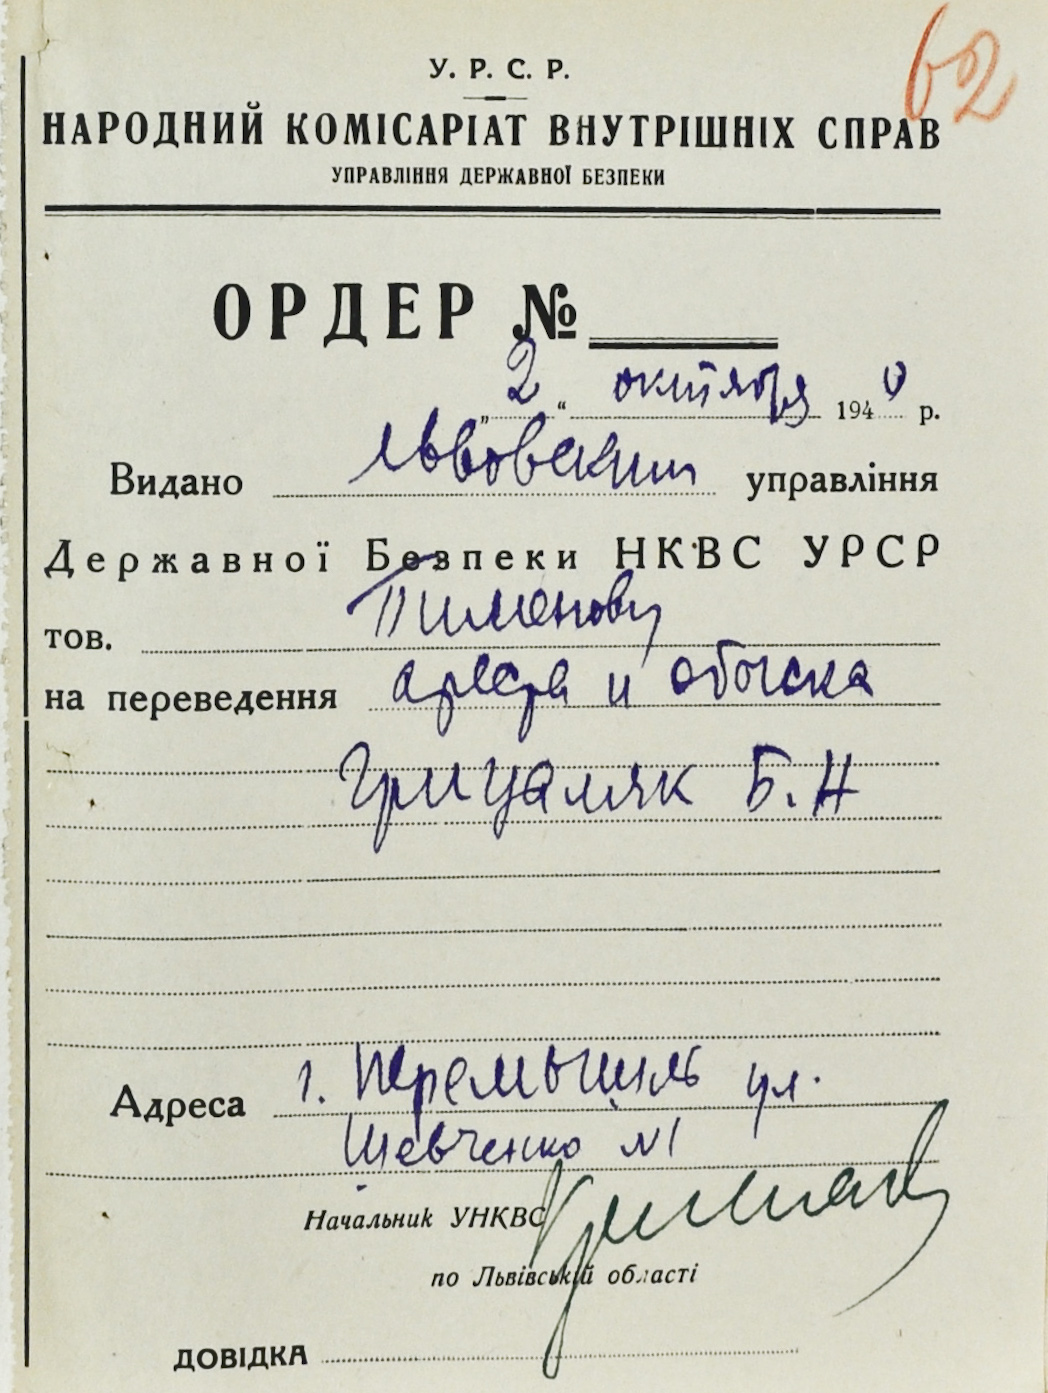 62
У. Р. С. Р.
НАРОДНИЙ КОМІСАРІАТ ВНУТРІШНІХ СПРАВ
УПРАВЛІННЯ ДЕРЖАВНОЇ БЕЗПЕКИ
ОРДЕР №
„2“ октября 1940 р.
Видано Львовским управління
Державної Безпеки НКВС УРСР
тов. Пименову
на переведення ареста и обыска
Грицаляк Б. Н
Адреса г. Перемышль ул.
Шевченко №1
Начальник УНКВС
по Львівській області
ДОВІДКА